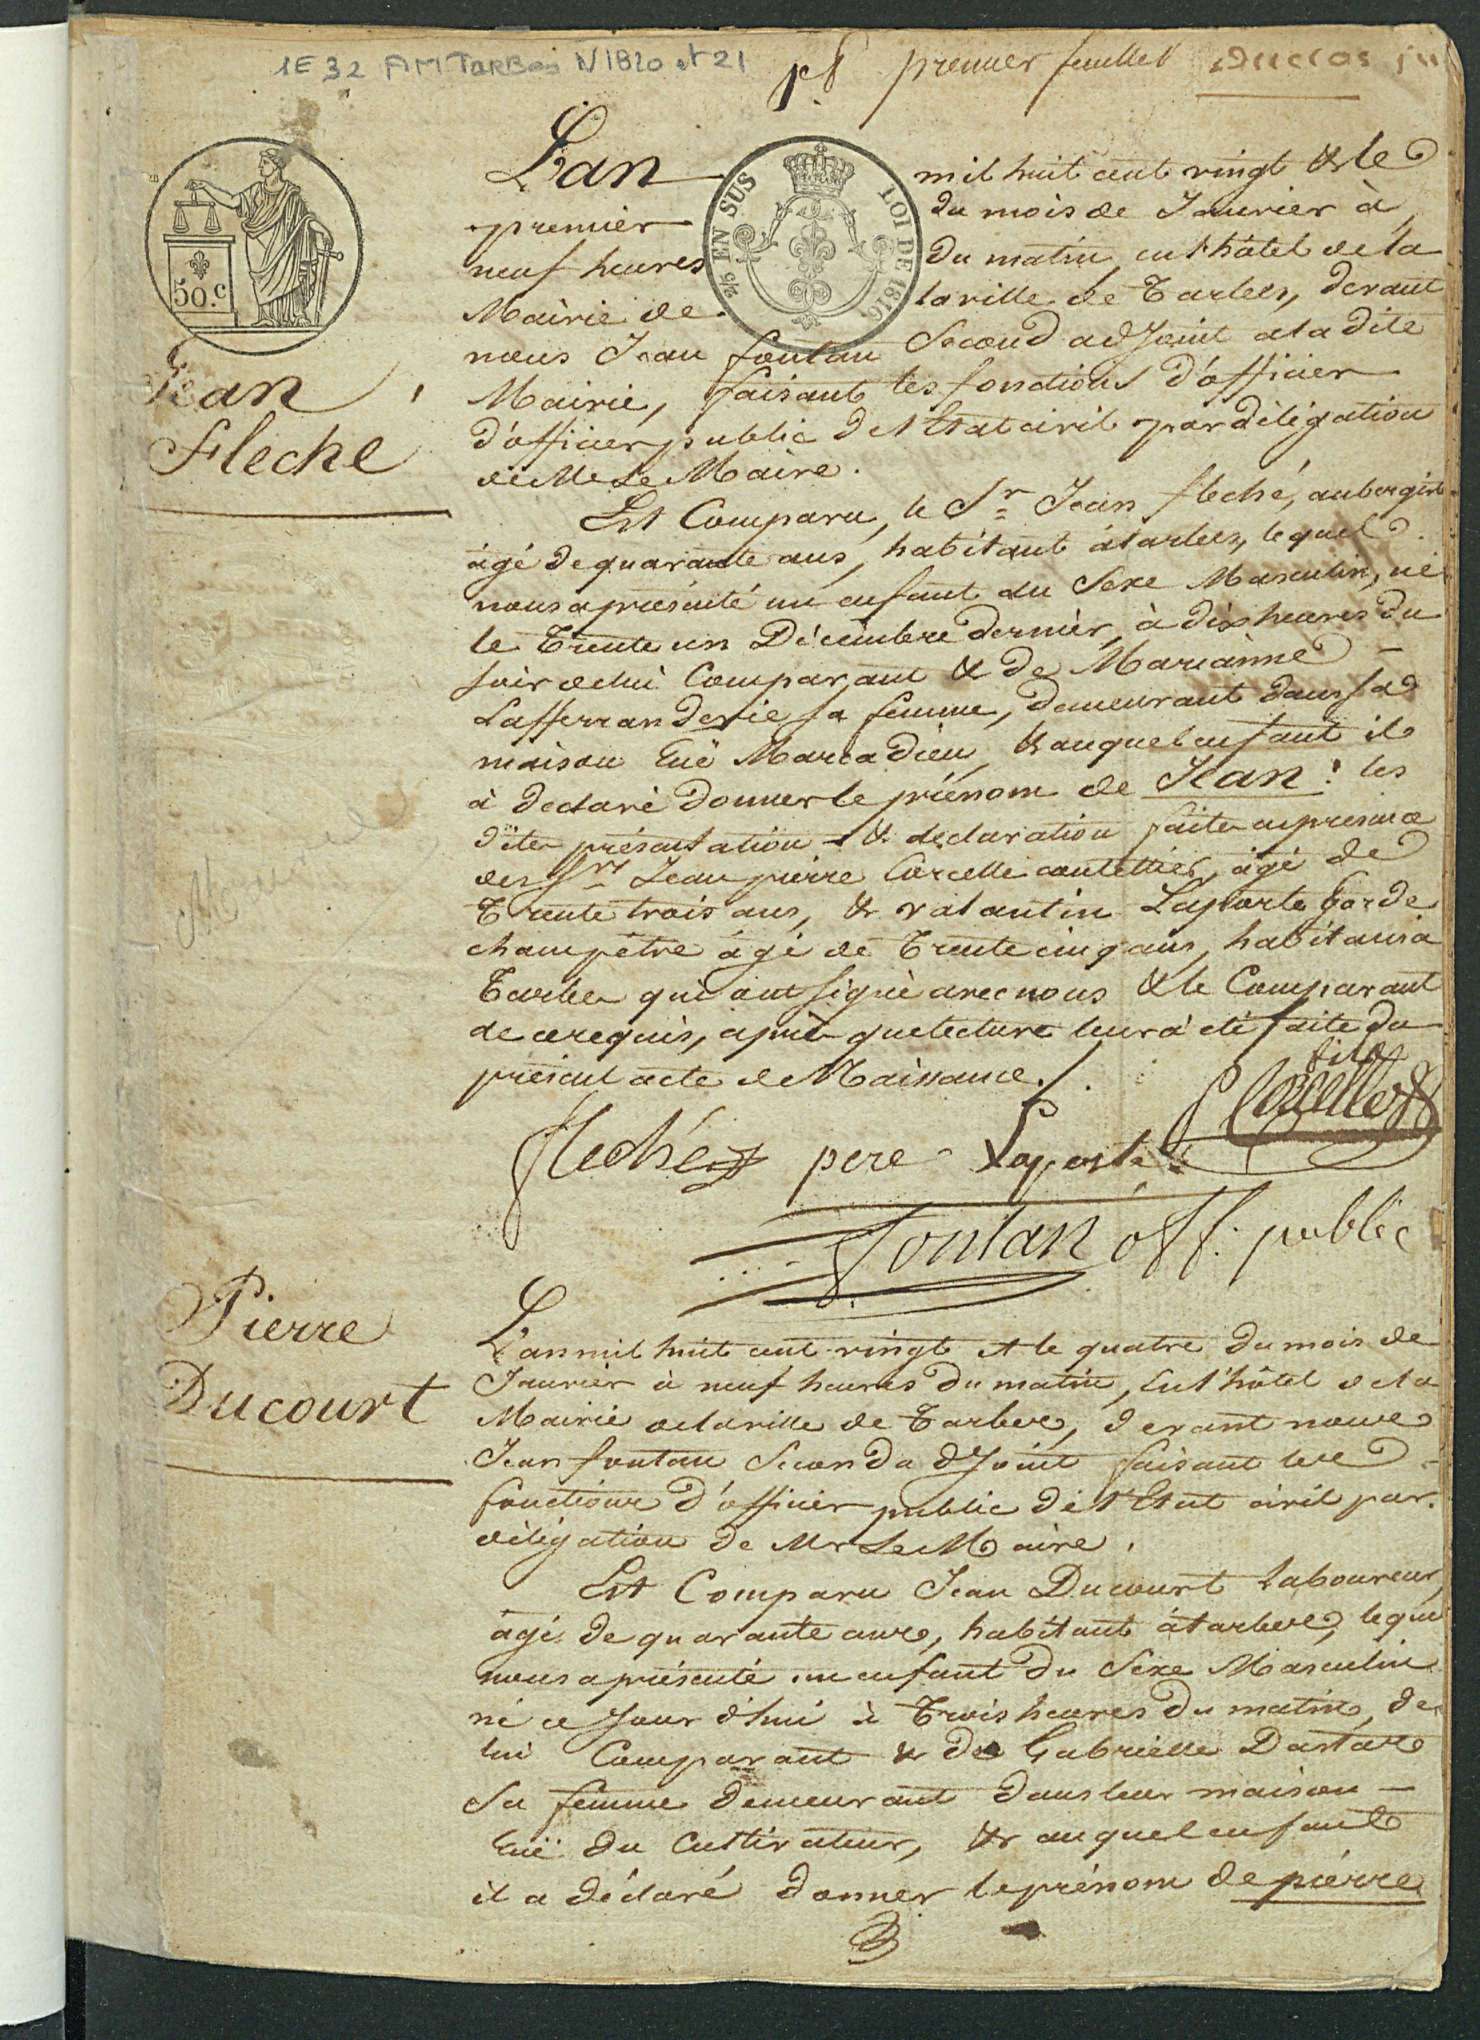 1E 32 AM Tarbes N 1820 et 21
premier feuillet
Duclos
50.c
2/5 EN SUS
LOI DE 1816
Jean
Fleche
L'an mil huit cent vingt & le
premier du mois de Janvier à
neuf heures du matin, en l'hôtel de la
Mairie de la ville de Tarbes, devant
nous Jean fontan Second adjoint a la dite
Mairie, faisant les fonctions d'officier
d'officier public de l'Etat civil par délégation
de Mr Le Maire.
Est Comparu, le Sr Jean fleché, aubergiste
âgé de quarante ans, habitant à tarbes, lequel
nous a présenté un enfant du Sexe Masculin, né
le Trente un Décembre dernier, à dix heures du
soir de lui Comparant & de Marianne
Lafferranderie sa femme, demeurant dans sa
maison Ruë Marcadieu, & auquel enfant il
à declaré donner le prénom de Jean: les
dites présentation & déclaration faites en présence
des Srs Jean pierre Corcelle coutellier, âgé de
Trente trois ans, & valantin Laporte Garde
champêtre âgé de Trente cinq ans, habitans à
Tarbes qui ont signé avec nous & le Comparant
de ce requis, après que lecture leur à été faite du
présent acte de Naissance.
fils
Corcelle
fleché pere Laporte
fontan off. public
Pierre
Ducourt
L'an mil huit cent vingt et le quatre du mois de
Janvier à neuf heures du matin, en l'hôtel de la
Mairie de la ville de Tarbes, devant nous
Jean fontan Second adjoint faisant les
fonctions d'officier public de l'Etat civil par
délégation de Mr Le Maire.
Est Comparu Jean Ducourt laboureur,
âgé de quarante ans, habitant à tarbes, lequel
nous a présenté un enfant du Sexe Masculin
né ce jour d'hui à Trois heures du matin, de
lui Comparant & de Gabrielle Dastas
Sa femme demeurant dans leur maison
Ruë du Cultivateur, & auquel enfant
il a déclaré donner le prénom de pierre